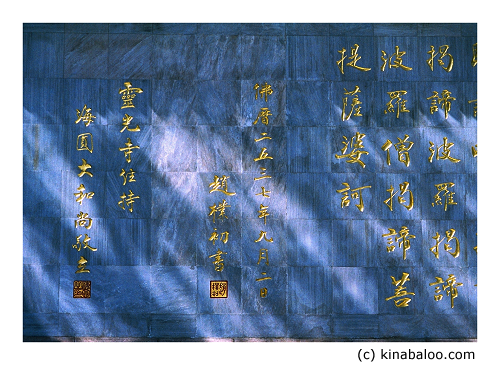 揭諦波羅揭諦
波羅僧揭諦菩
提薩婆訶
佛曆二五三七年九月二日
趙樸初書
靈光寺住持
海圓大和尚敬立
(c) kinabaloo.com